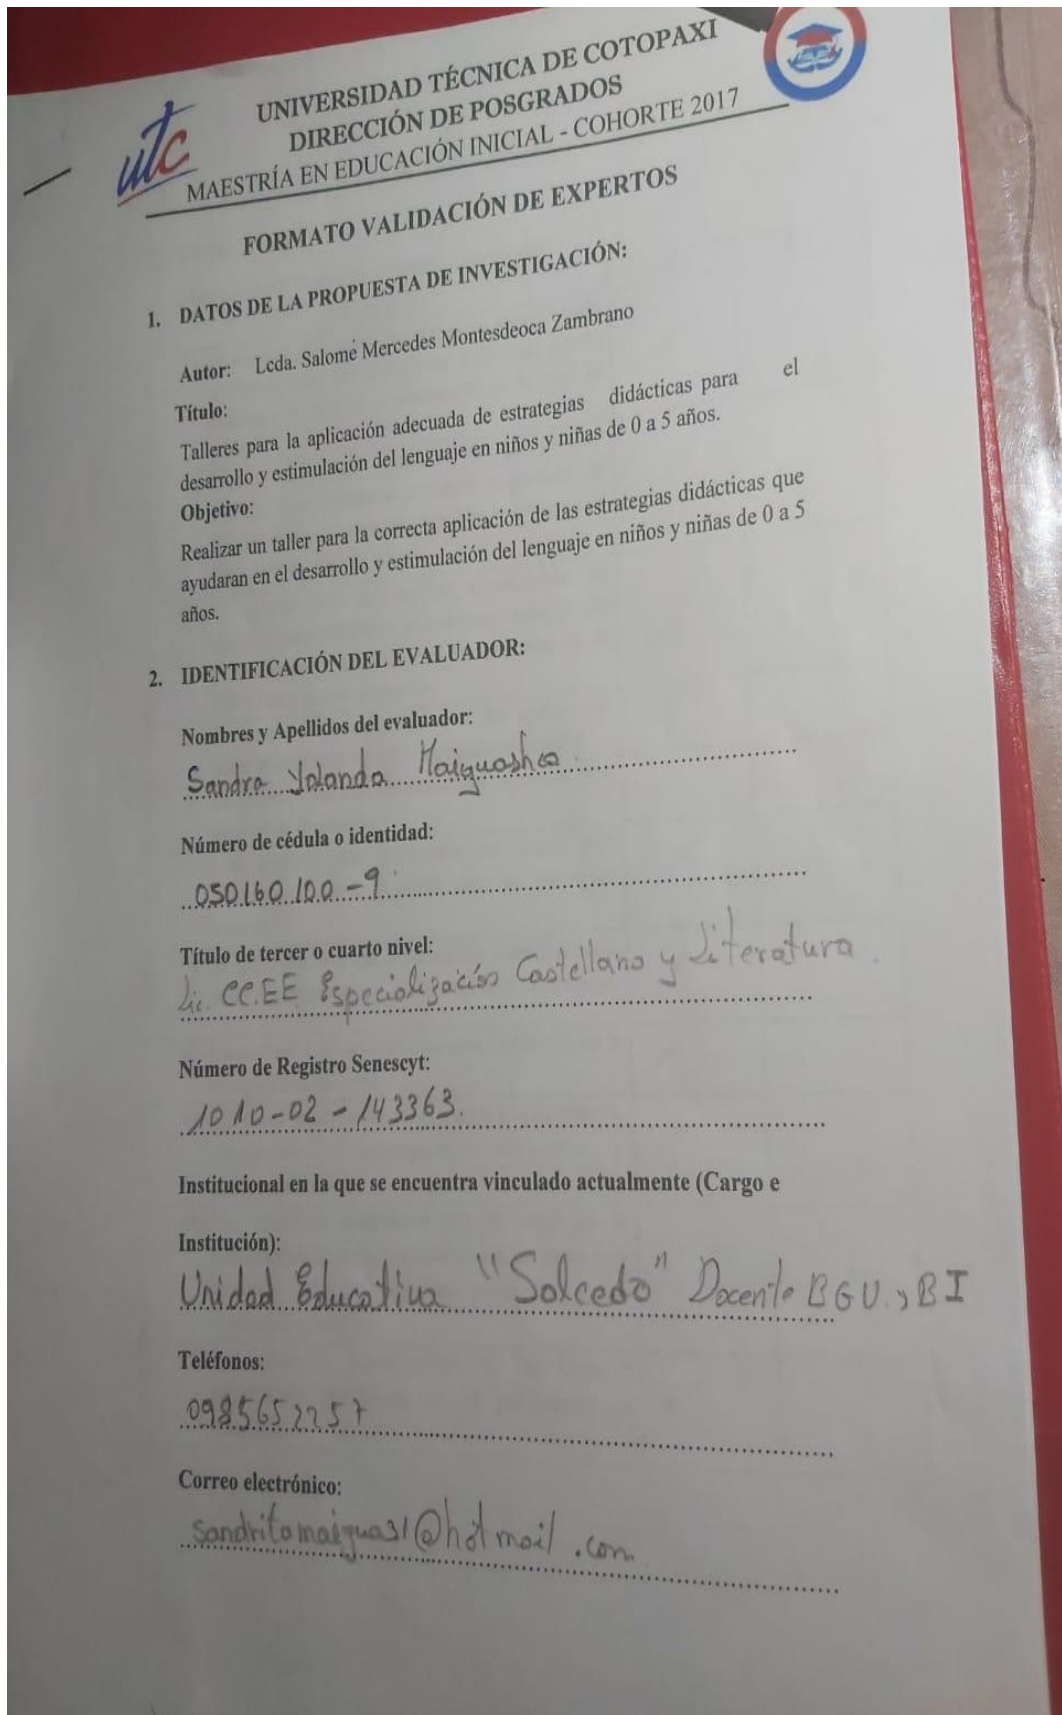 utc
UNIVERSIDAD TÉCNICA DE COTOPAXI
DIRECCIÓN DE POSGRADOS
MAESTRÍA EN EDUCACIÓN INICIAL - COHORTE 2017
FORMATO VALIDACIÓN DE EXPERTOS
1. DATOS DE LA PROPUESTA DE INVESTIGACIÓN:
Autor: Lcda. Salomé Mercedes Montesdeoca Zambrano
Título:
Talleres para la aplicación adecuada de estrategias didácticas para el
desarrollo y estimulación del lenguaje en niños y niñas de 0 a 5 años.
Objetivo:
Realizar un taller para la correcta aplicación de las estrategias didácticas que
ayudaran en el desarrollo y estimulación del lenguaje en niños y niñas de 0 a 5
años.
2. IDENTIFICACIÓN DEL EVALUADOR:
Nombres y Apellidos del evaluador:
Sandra Yolanda Maiguashca
Número de cédula o identidad:
050160100-9
Título de tercer o cuarto nivel:
Lic. CC.EE Especialización Castellano y Literatura.
Número de Registro Senescyt:
1010-02-143363.
Institucional en la que se encuentra vinculado actualmente (Cargo e
Institución):
Unidad Educativa "Salcedo" Docente BGU. y BI
Teléfonos:
0985652257
Correo electrónico:
sandritamaigua31@hotmail.com